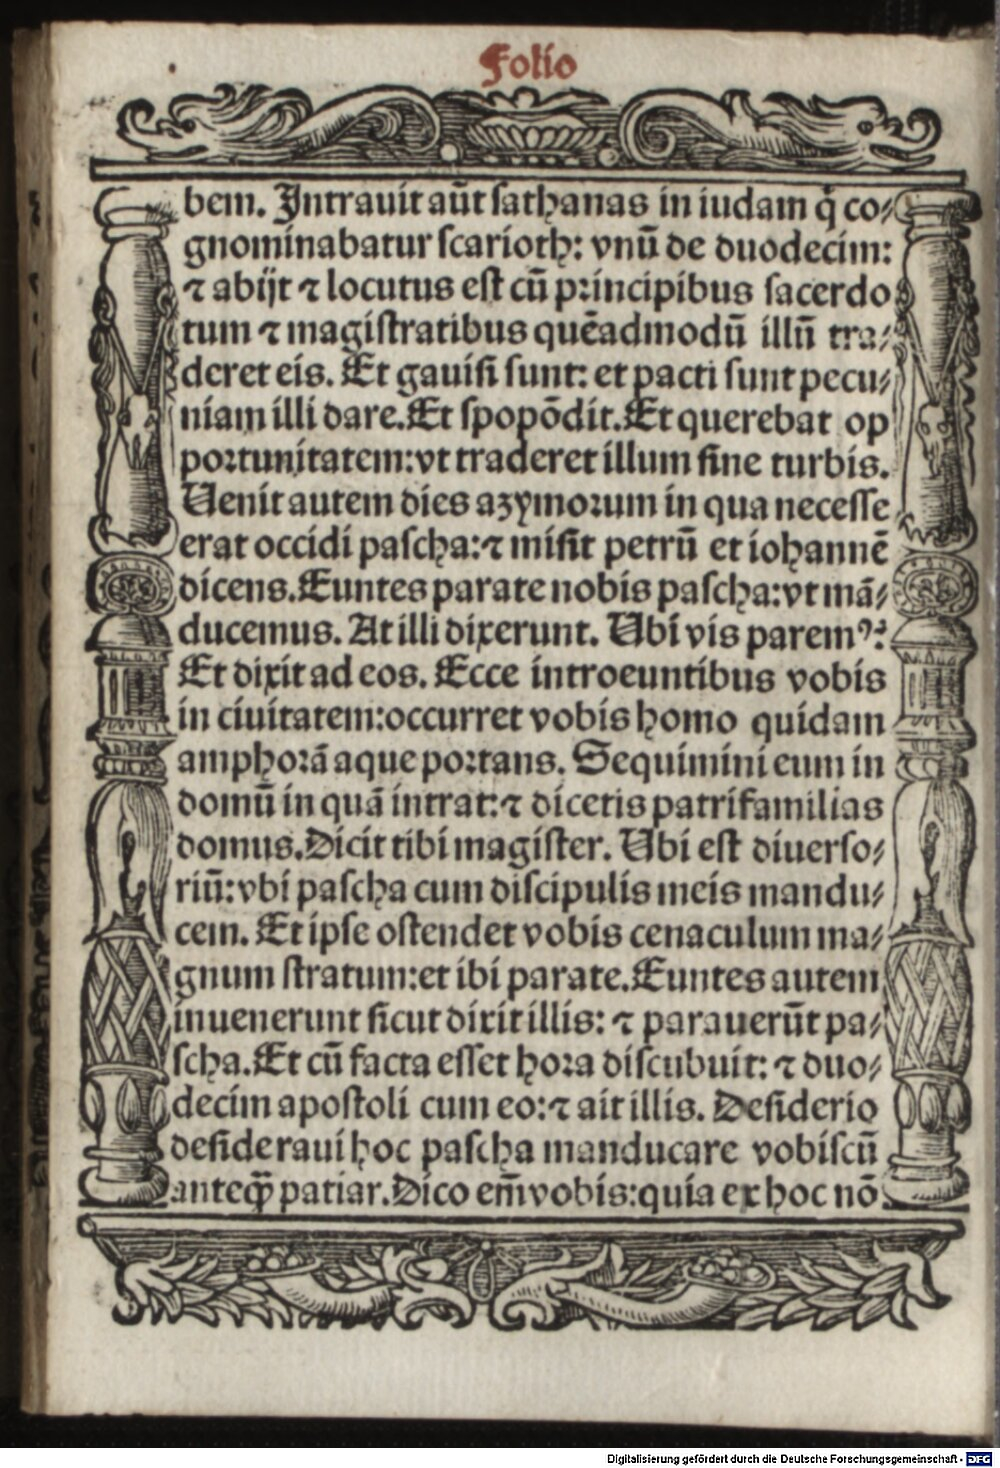 Folio
bem. Intrauit aūt sathanas in iudam q̇ co⸗
gnominabatur scarioth: vnū de duodecim:
⁊ abijt ⁊ locutus est cū principibus sacerdo
tum ⁊ magistratibus quēadmodū illū tra⸗
deret eis. Et gauisi sunt: et pacti sunt pecu⸗
niam illi dare. Et spopōdit. Et querebat op
portunitatem: vt traderet illum sine turbis.
Uenit autem dies azymorum in qua necesse
erat occidi pascha: ⁊ misit petrū et iohannē
dicens. Euntes parate nobis pascha: vt mā⸗
ducemus. At illi dixerunt. Ubi vis paremꝰ?
Et dixit ad eos. Ecce introeuntibus vobis
in ciuitatem: occurret vobis homo quidam
amphorā aque portans. Sequimini eum in
domū in quā intrat: ⁊ dicetis patrifamilias
domus. Dicit tibi magister. Ubi est diuerso⸗
riū: vbi pascha cum discipulis meis mandu⸗
cem. Et ipse ostendet vobis cenaculum ma⸗
gnum stratum: et ibi parate. Euntes autem
inuenerunt sicut dixit illis: ⁊ parauerūt pa⸗
scha. Et cū facta esset hora discubuit: ⁊ duo⸗
decim apostoli cum eo: ⁊ ait illis. Desiderio
desideraui hoc pascha manducare vobiscū
anteq̄ꝫ patiar. Dico em̄ vobis: quia ex hoc nō
Digitalisierung gefördert durch die Deutsche Forschungsgemeinschaft - DFG